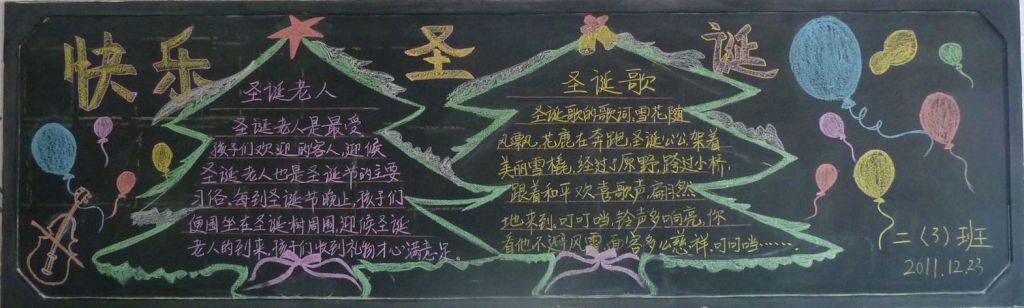 快乐圣诞
圣诞老人
圣诞老人是最受
孩子们欢迎的客人,迎候
圣诞老人也是圣诞节的主要
习俗。每到圣诞节晚上,孩子们
便围坐在圣诞树周围,迎候圣诞
老人的到来,孩子们收到礼物才心满意足。
圣诞歌
圣诞歌的歌词,雪花随
风飘,花鹿在奔跑,圣诞公公驾着
美丽雪橇,经过了原野,跨过小桥,
跟着和平欢喜歌声翩然
地来到,叮叮当,铃声多响亮,你
看他不避风雪,面容多么慈祥,叮叮当……
二(3)班
2011.12.23